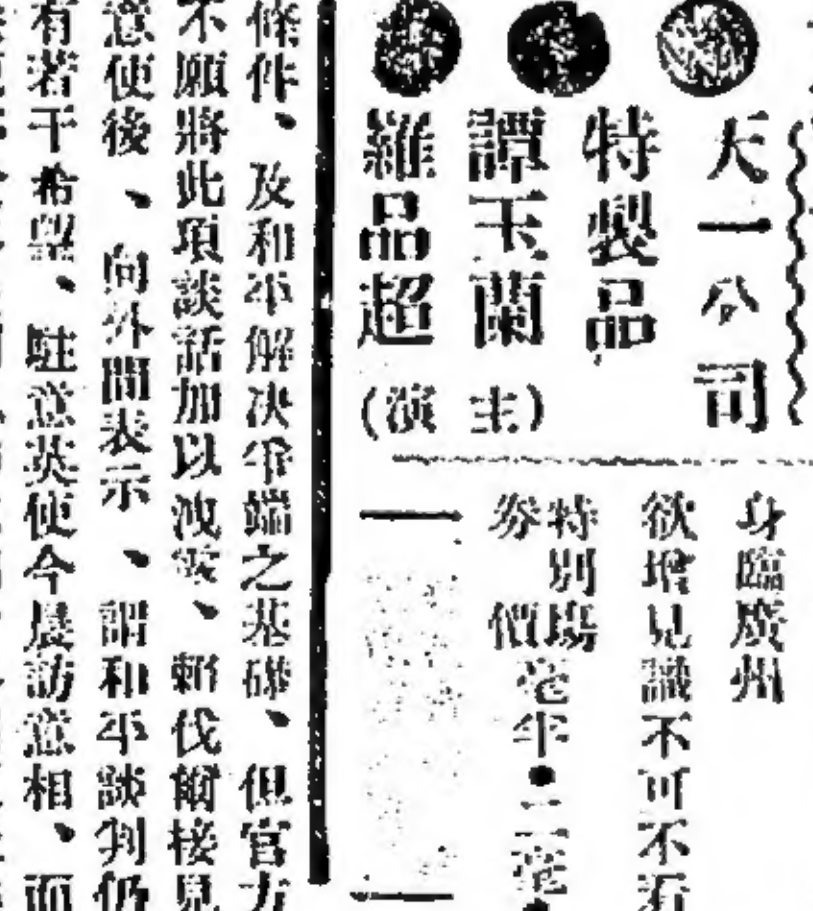 天一公司
特製品
譚玉蘭
羅品超
(主演)
身臨廣州
欲增見識不可不看
特別場
券價毫半●二毫●
條件、及和平解决爭端之基礎、但官方
不願將此項談話加以洩露、賴伐爾接見
意使後、向外間表示、謂和平談判仍
有若干希望、駐意英使今晨訪意相、面